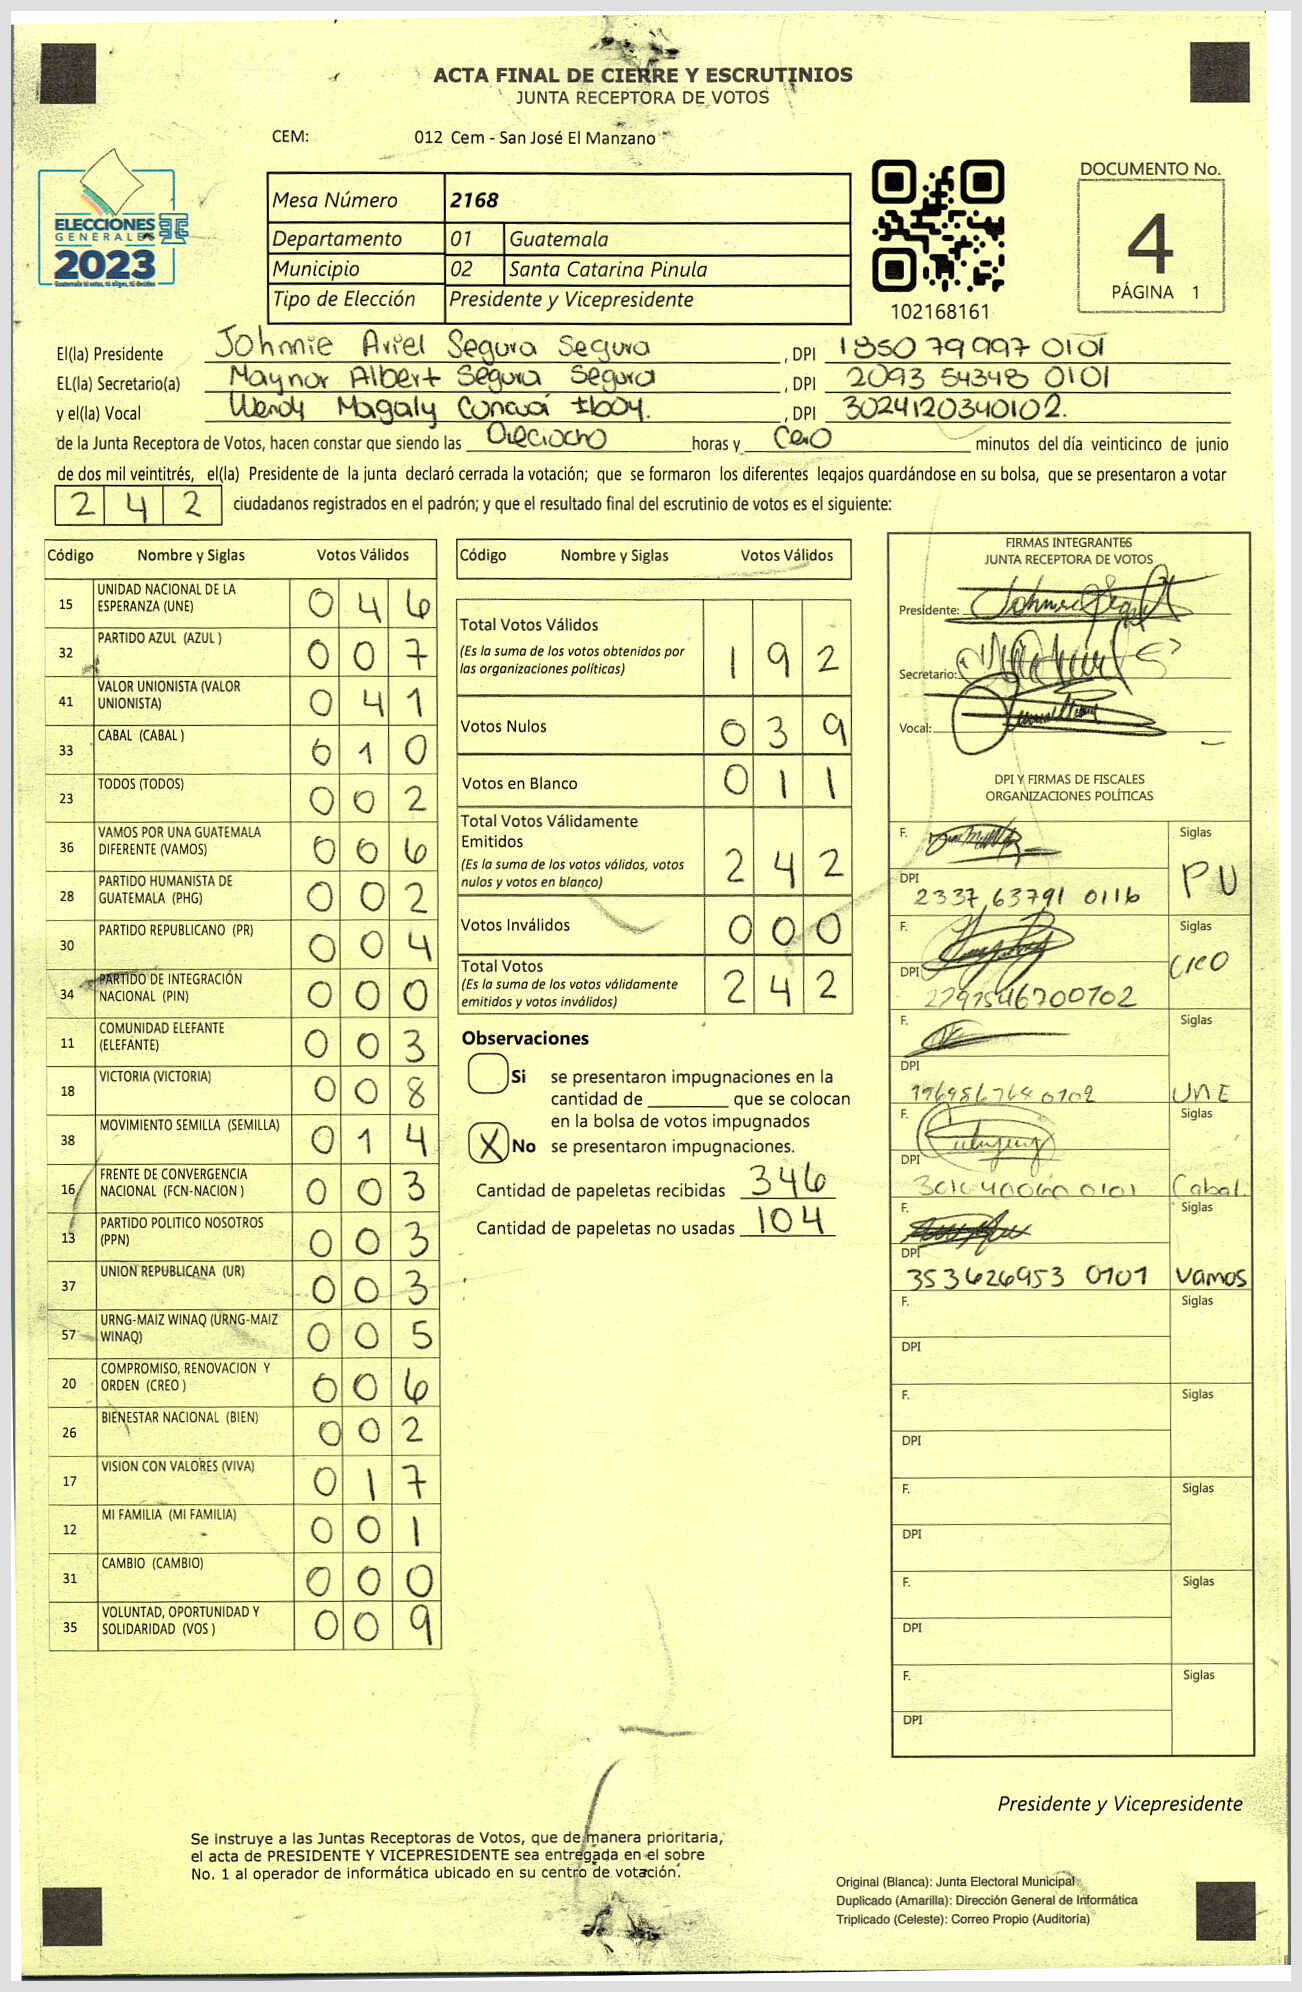 ACTA FINAL DE CIERRE Y ESCRUTINIOS
JUNTA RECEPTORA DE VOTOS
CEM: 012 Cem - San José El Manzano
ELECCIONES
GENERALES
2023
Guatemala tú votas, tú eliges, tú decides
Mesa Número 2168
Departamento 01 Guatemala
Municipio 02 Santa Catarina Pinula
Tipo de Elección Presidente y Vicepresidente
102168161
DOCUMENTO No.
4
PÁGINA 1
El(la) Presidente Johnnie Ariel Segura Segura , DPI 1850 79997 0101
EL(la) Secretario(a) Maynor Albert Segura Segura , DPI 2093 54348 0101
y el(la) Vocal Wendy Magaly Concuá , DPI 3024120340102.
de la Junta Receptora de Votos, hacen constar que siendo las Dieciocho horas y Cero minutos del día veinticinco de junio
de dos mil veintitrés, el(la) Presidente de la junta declaró cerrada la votación; que se formaron los diferentes legajos guardándose en su bolsa, que se presentaron a votar
242 ciudadanos registrados en el padrón; y que el resultado final del escrutinio de votos es el siguiente:
Código Nombre y Siglas Votos Válidos
15 UNIDAD NACIONAL DE LA ESPERANZA (UNE) 046
32 PARTIDO AZUL (AZUL ) 007
41 VALOR UNIONISTA (VALOR UNIONISTA) 041
33 CABAL (CABAL ) 010
23 TODOS (TODOS) 002
36 VAMOS POR UNA GUATEMALA DIFERENTE (VAMOS) 006
28 PARTIDO HUMANISTA DE GUATEMALA (PHG) 002
30 PARTIDO REPUBLICANO (PR) 004
34 PARTIDO DE INTEGRACIÓN NACIONAL (PIN) 000
11 COMUNIDAD ELEFANTE (ELEFANTE) 003
18 VICTORIA (VICTORIA) 008
38 MOVIMIENTO SEMILLA (SEMILLA) 014
16 FRENTE DE CONVERGENCIA NACIONAL (FCN-NACION ) 003
13 PARTIDO POLITICO NOSOTROS (PPN) 003
37 UNION REPUBLICANA (UR) 003
57 URNG-MAIZ WINAQ (URNG-MAIZ WINAQ) 005
20 COMPROMISO, RENOVACION Y ORDEN (CREO ) 006
26 BIENESTAR NACIONAL (BIEN) 002
17 VISION CON VALORES (VIVA) 017
12 MI FAMILIA (MI FAMILIA) 001
31 CAMBIO (CAMBIO) 000
35 VOLUNTAD, OPORTUNIDAD Y SOLIDARIDAD (VOS ) 009
Código Nombre y Siglas Votos Válidos
Total Votos Válidos 192
(Es la suma de los votos obtenidos por
las organizaciones políticas)
Votos Nulos 039
Votos en Blanco 011
Total Votos Válidamente
Emitidos 242
(Es la suma de los votos válidos, votos
nulos y votos en blanco)
Votos Inválidos 000
Total Votos 242
(Es la suma de los votos válidamente
emitidos y votos inválidos)
Observaciones
Si se presentaron impugnaciones en la
cantidad de ________ que se colocan
en la bolsa de votos impugnados
X No se presentaron impugnaciones.
Cantidad de papeletas recibidas 346
Cantidad de papeletas no usadas 104
FIRMAS INTEGRANTES
JUNTA RECEPTORA DE VOTOS
Presidente:
Secretario:
Vocal:
DPI Y FIRMAS DE FISCALES
ORGANIZACIONES POLÍTICAS
F. Siglas
DPI 2337 63791 0116 PU
F. Siglas
DPI CREO
F. Siglas
DPI UNE
F. Siglas
DPI Cabal.
F. Siglas
DPI 353626953 0101 Vamos
F. Siglas
DPI
F. Siglas
DPI
F. Siglas
DPI
F. Siglas
DPI
F. Siglas
DPI
Presidente y Vicepresidente
Se instruye a las Juntas Receptoras de Votos, que de manera prioritaria,
el acta de PRESIDENTE Y VICEPRESIDENTE sea entregada en el sobre
No. 1 al operador de informática ubicado en su centro de votación.
Original (Blanca): Junta Electoral Municipal
Duplicado (Amarilla): Dirección General de Informática
Triplicado (Celeste): Correo Propio (Auditoría)